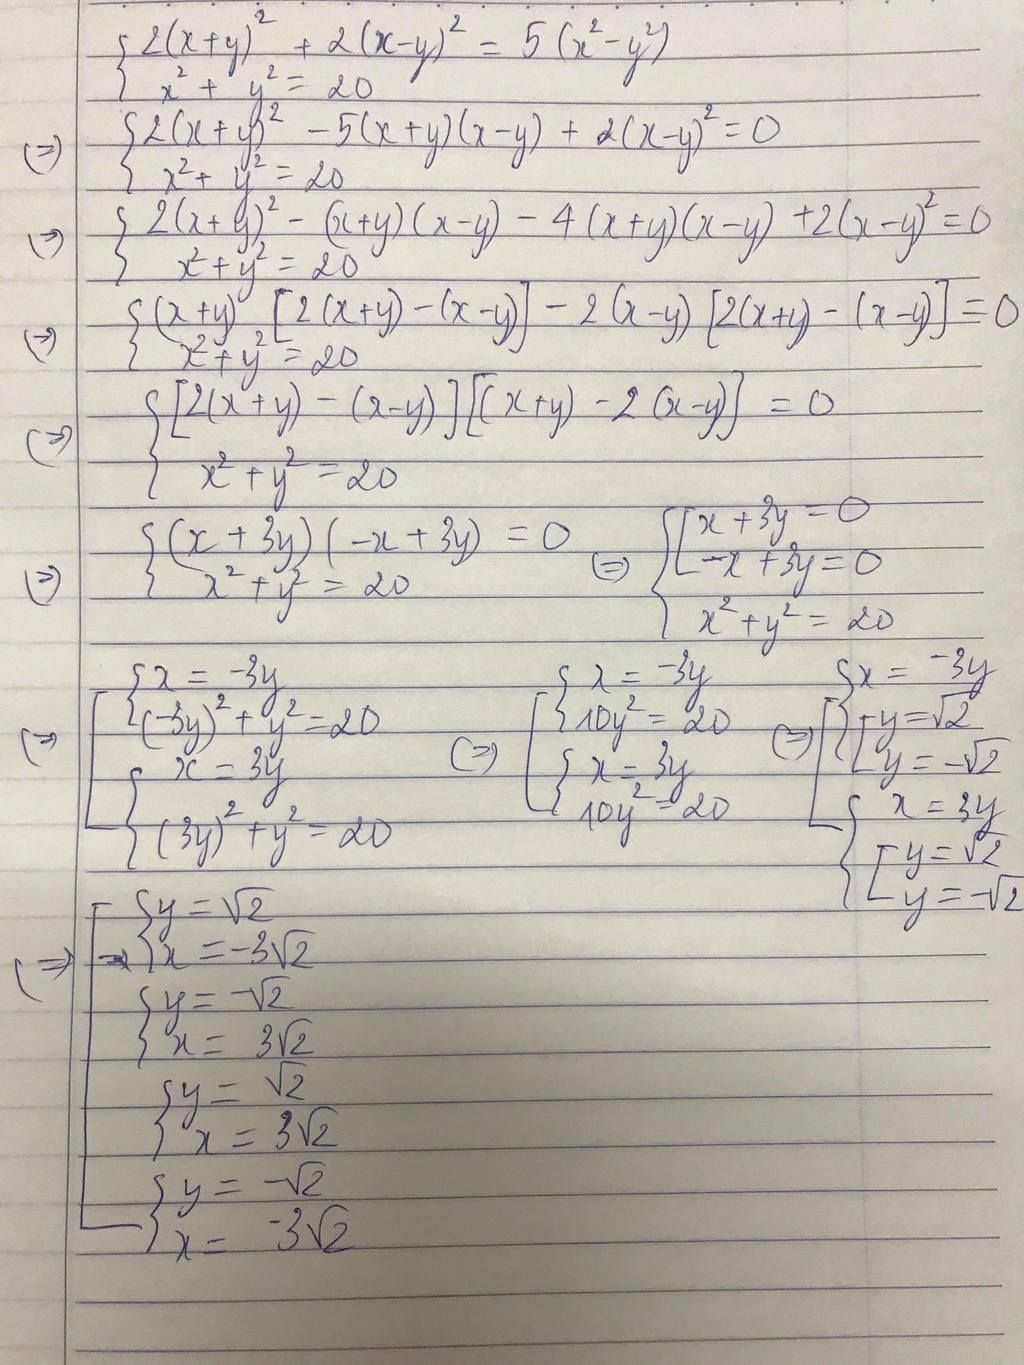 { 2(x+y)² + 2(x-y)² = 5(x²-y²)
x² + y² = 20
(=) { 2(x+y)² - 5(x+y)(x-y) + 2(x-y)² = 0
x² + y² = 20
(=) { 2(x+y)² - (x+y)(x-y) - 4(x+y)(x-y) + 2(x-y)² = 0
x² + y² = 20
(=) { (x+y) [2(x+y) - (x-y)] - 2(x-y) [2(x+y) - (x-y)] = 0
x² + y² = 20
(=) { [2(x+y) - (x-y)][(x+y) - 2(x-y)] = 0
x² + y² = 20
(=) { (x+3y)(-x+3y) = 0
x² + y² = 20
(=) { [ x+3y = 0
-x+3y = 0
x² + y² = 20
(=) [ { x = -3y
(-3y)² + y² = 20
{ x = 3y
(3y)² + y² = 20
(=) [ { x = -3y
10y² = 20
{ x = 3y
10y² = 20
(=) [ { x = -3y
[ y = √2
y = -√2
{ x = 3y
[ y = √2
y = -√2
(=) [ { y = √2
x = -3√2
{ y = -√2
x = 3√2
{ y = √2
x = 3√2
{ y = -√2
x = -3√2